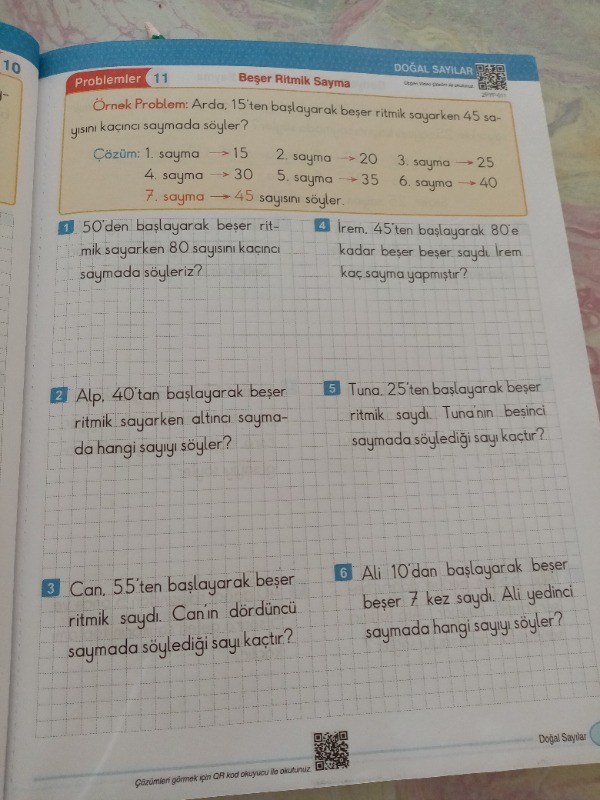 10
DOĞAL SAYILAR
Problemler 11
Beşer Ritmik Sayma
Örnek Problem: Arda, 15'ten başlayarak beşer ritmik sayarken 45 sa-
yısını kaçıncı saymada söyler?
Çözüm: 1. sayma → 15 2. sayma → 20 3. sayma → 25
4. sayma → 30 5. sayma → 35 6. sayma → 40
7. sayma → 45 sayısını söyler.
1 50'den başlayarak beşer rit-
mik sayarken 80 sayısını kaçıncı
saymada söyleriz?
2 Alp, 40'tan başlayarak beşer
ritmik sayarken altıncı sayma-
da hangi sayıyı söyler?
3 Can, 55'ten başlayarak beşer
ritmik saydı. Can'ın dördüncü
saymada söylediği sayı kaçtır?
4 İrem, 45'ten başlayarak 80'e
kadar beşer beşer saydı. İrem
kaç sayma yapmıştır?
5 Tuna, 25'ten başlayarak beşer
ritmik saydı. Tuna'nın beşinci
saymada söylediği sayı kaçtır?
6 Ali 10'dan başlayarak beşer
beşer 7 kez saydı. Ali yedinci
saymada hangi sayıyı söyler?
Çözümleri görmek için QR kod okuyucu ile okutunuz.
Doğal Sayılar